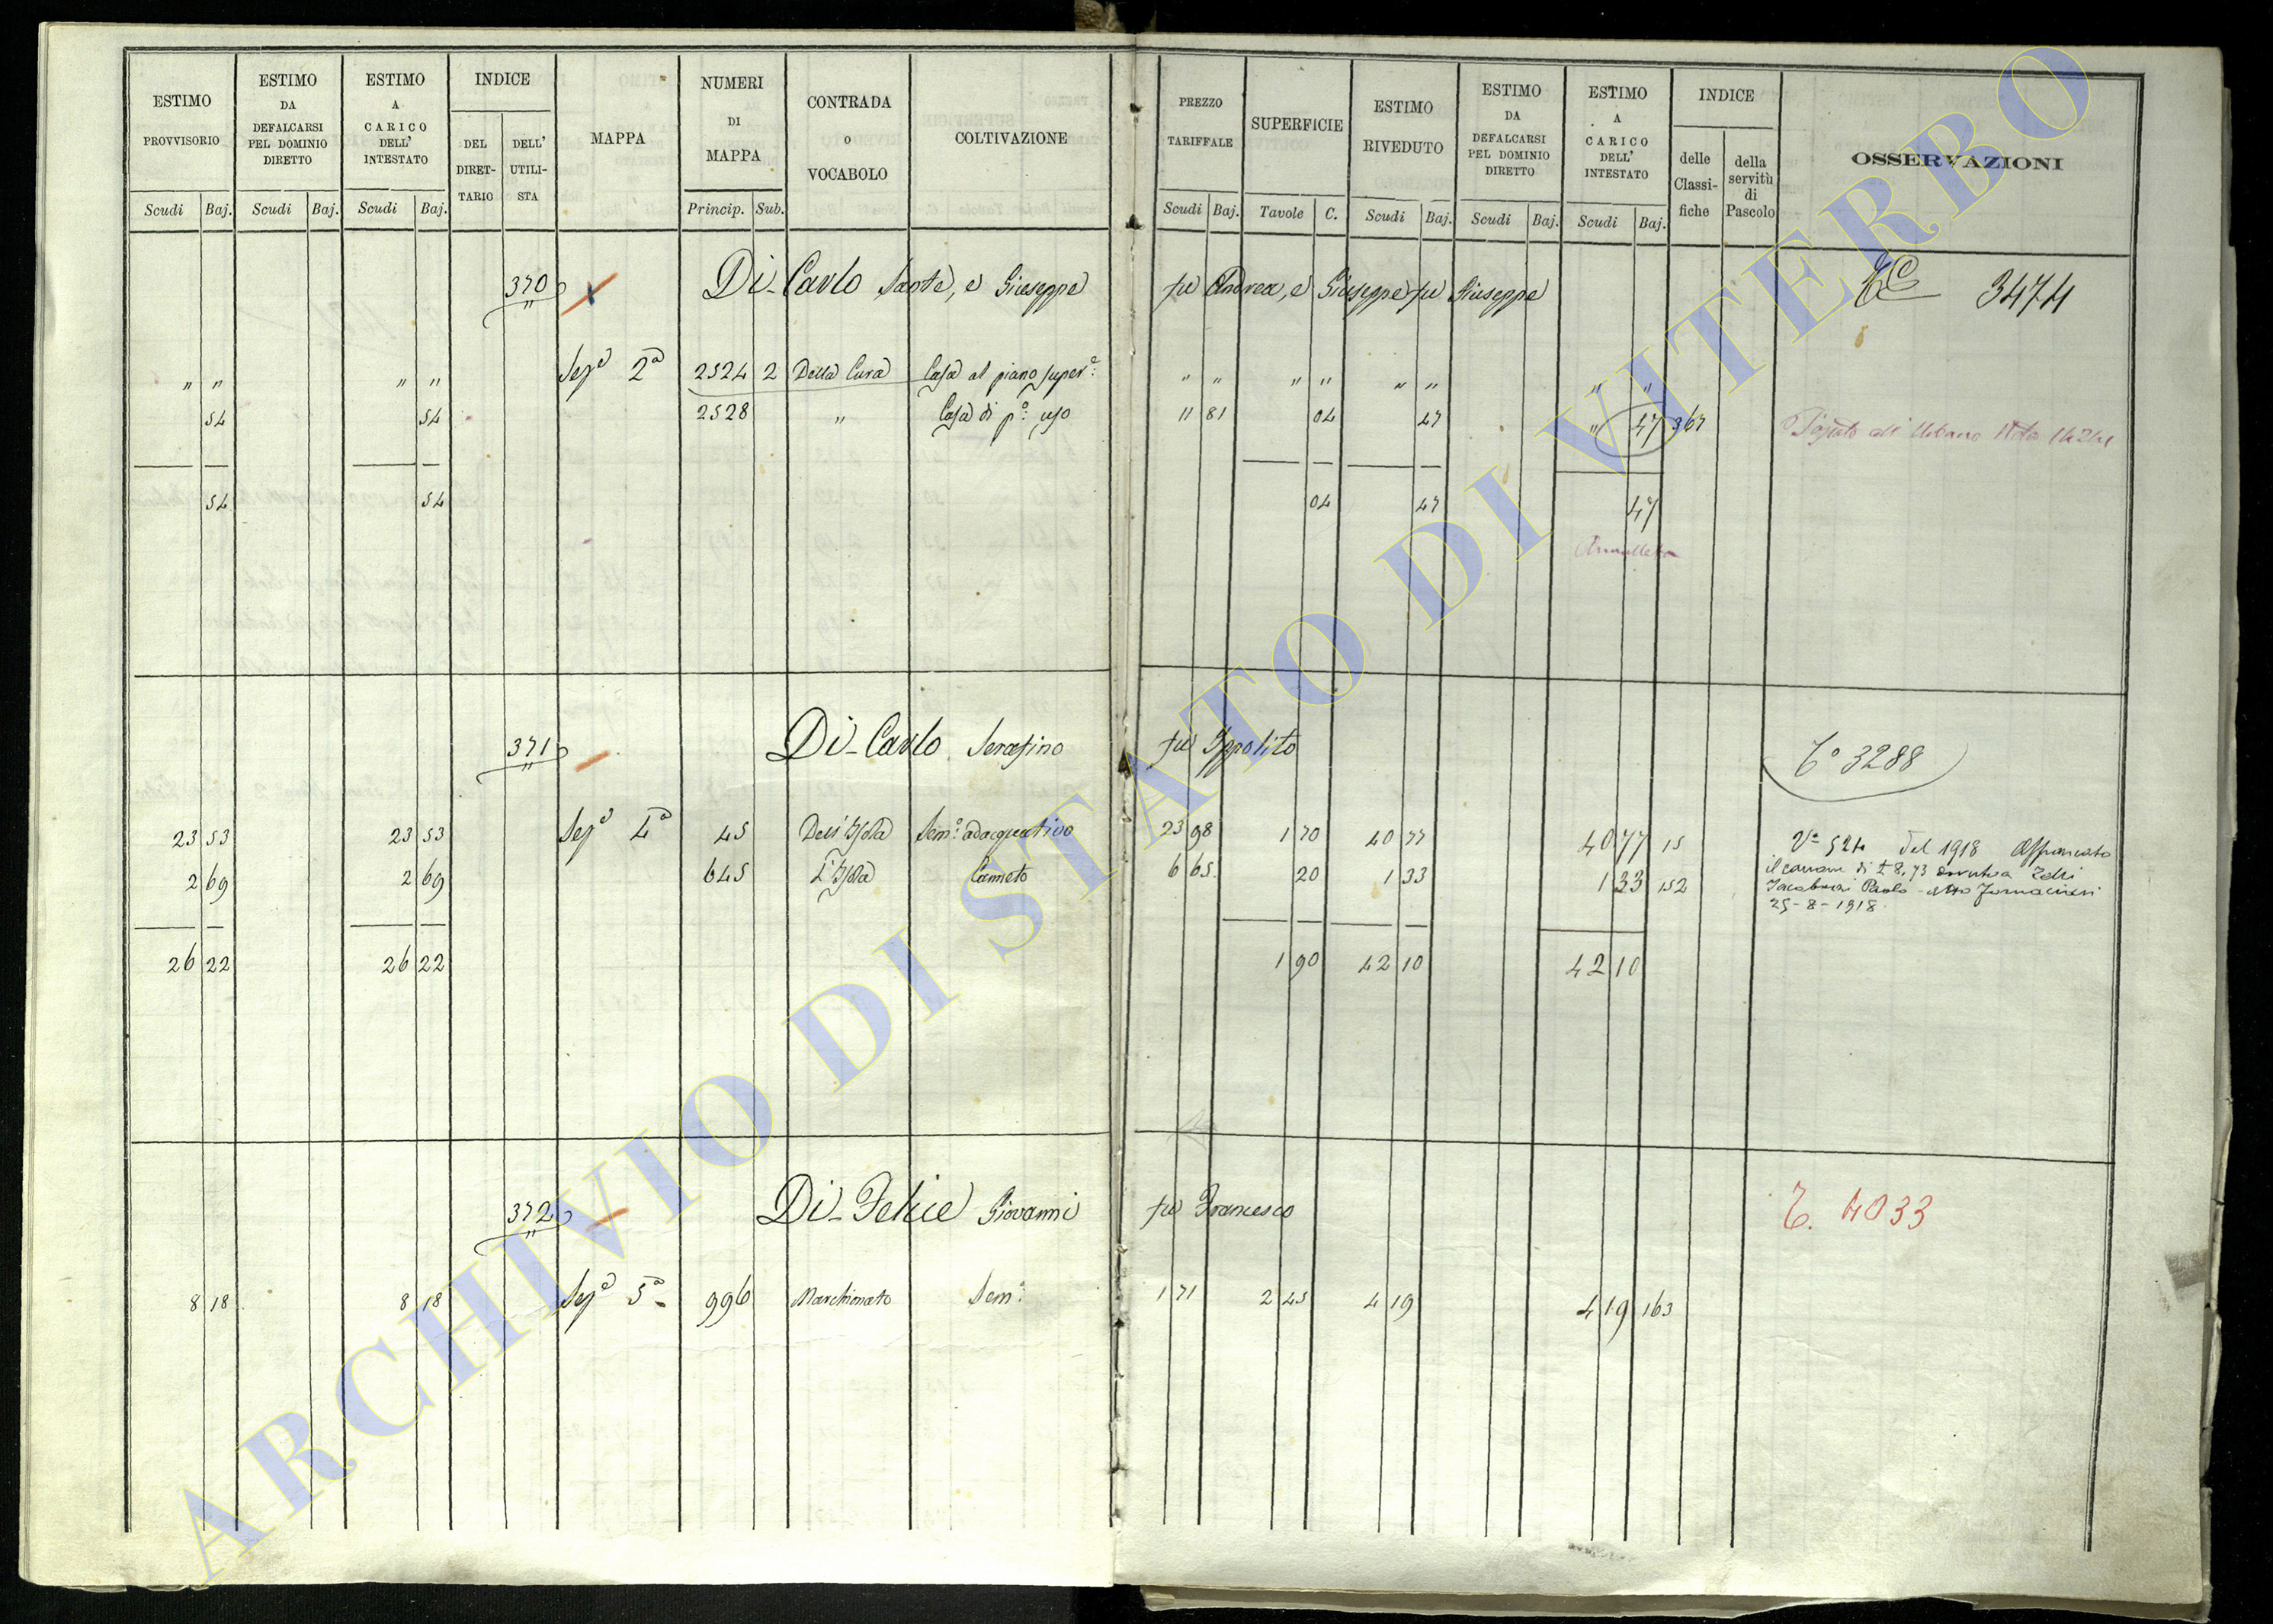 ESTIMO PROVVISORIO
ESTIMO DA DEFALCARSI PEL DOMINIO DIRETTO
ESTIMO A CARICO DELL' INTESTATO
INDICE
DEL DIRET- TARIO
DELL' UTILI- STA
MAPPA
NUMERI DI MAPPA
CONTRADA o VOCABOLO
COLTIVAZIONE
PREZZO TARIFFALE
SUPERFICIE
ESTIMO RIVEDUTO
ESTIMO DA DEFALCARSI PEL DOMINIO DIRETTO
ESTIMO A CARICO DELL' INTESTATO
INDICE
delle Classi- fiche
della servitù di Pascolo
OSSERVAZIONI
Scudi Baj. Scudi Baj. Scudi Baj. Princip. Sub. Scudi Baj. Tavole C. Scudi Baj. Scudi Baj. Scudi Baj.
370 Di Carlo Sante, e Giuseppe fu Andrea, e Giuseppe fu Giuseppe 3474
" " " " Sez.e 2a 2524 2 Della Cura Casa al piano super.e " " " " " " " "
54 54 2528 " Casa di p.o uso 11 81 04 47 " 47 367
54 54 04 47 47
Annullata
371 Di Carlo Serafino fu Ippolito To 3288
23 53 23 53 Sez.e 4a 45 Dell'Isola Sem.o adacquativo 23 98 1 70 40 77 40 77 15 del 1918 Affrancato
2 69 2 69 645 L'Isola Canneto 6 65 20 1 33 1 33 152 il canone di £ 8,73 dovuto a Zelli
Paolo - atto
25-8-1918
26 22 26 22 1 90 42 10 42 10
372 Di Felice Giovanni fu Francesco T. 4033
8 18 8 18 Sez.e 5a 996 Marchionato Sem.o 1 71 2 45 4 19 4 19 163
ARCHIVIO DI STATO DI VITERBO